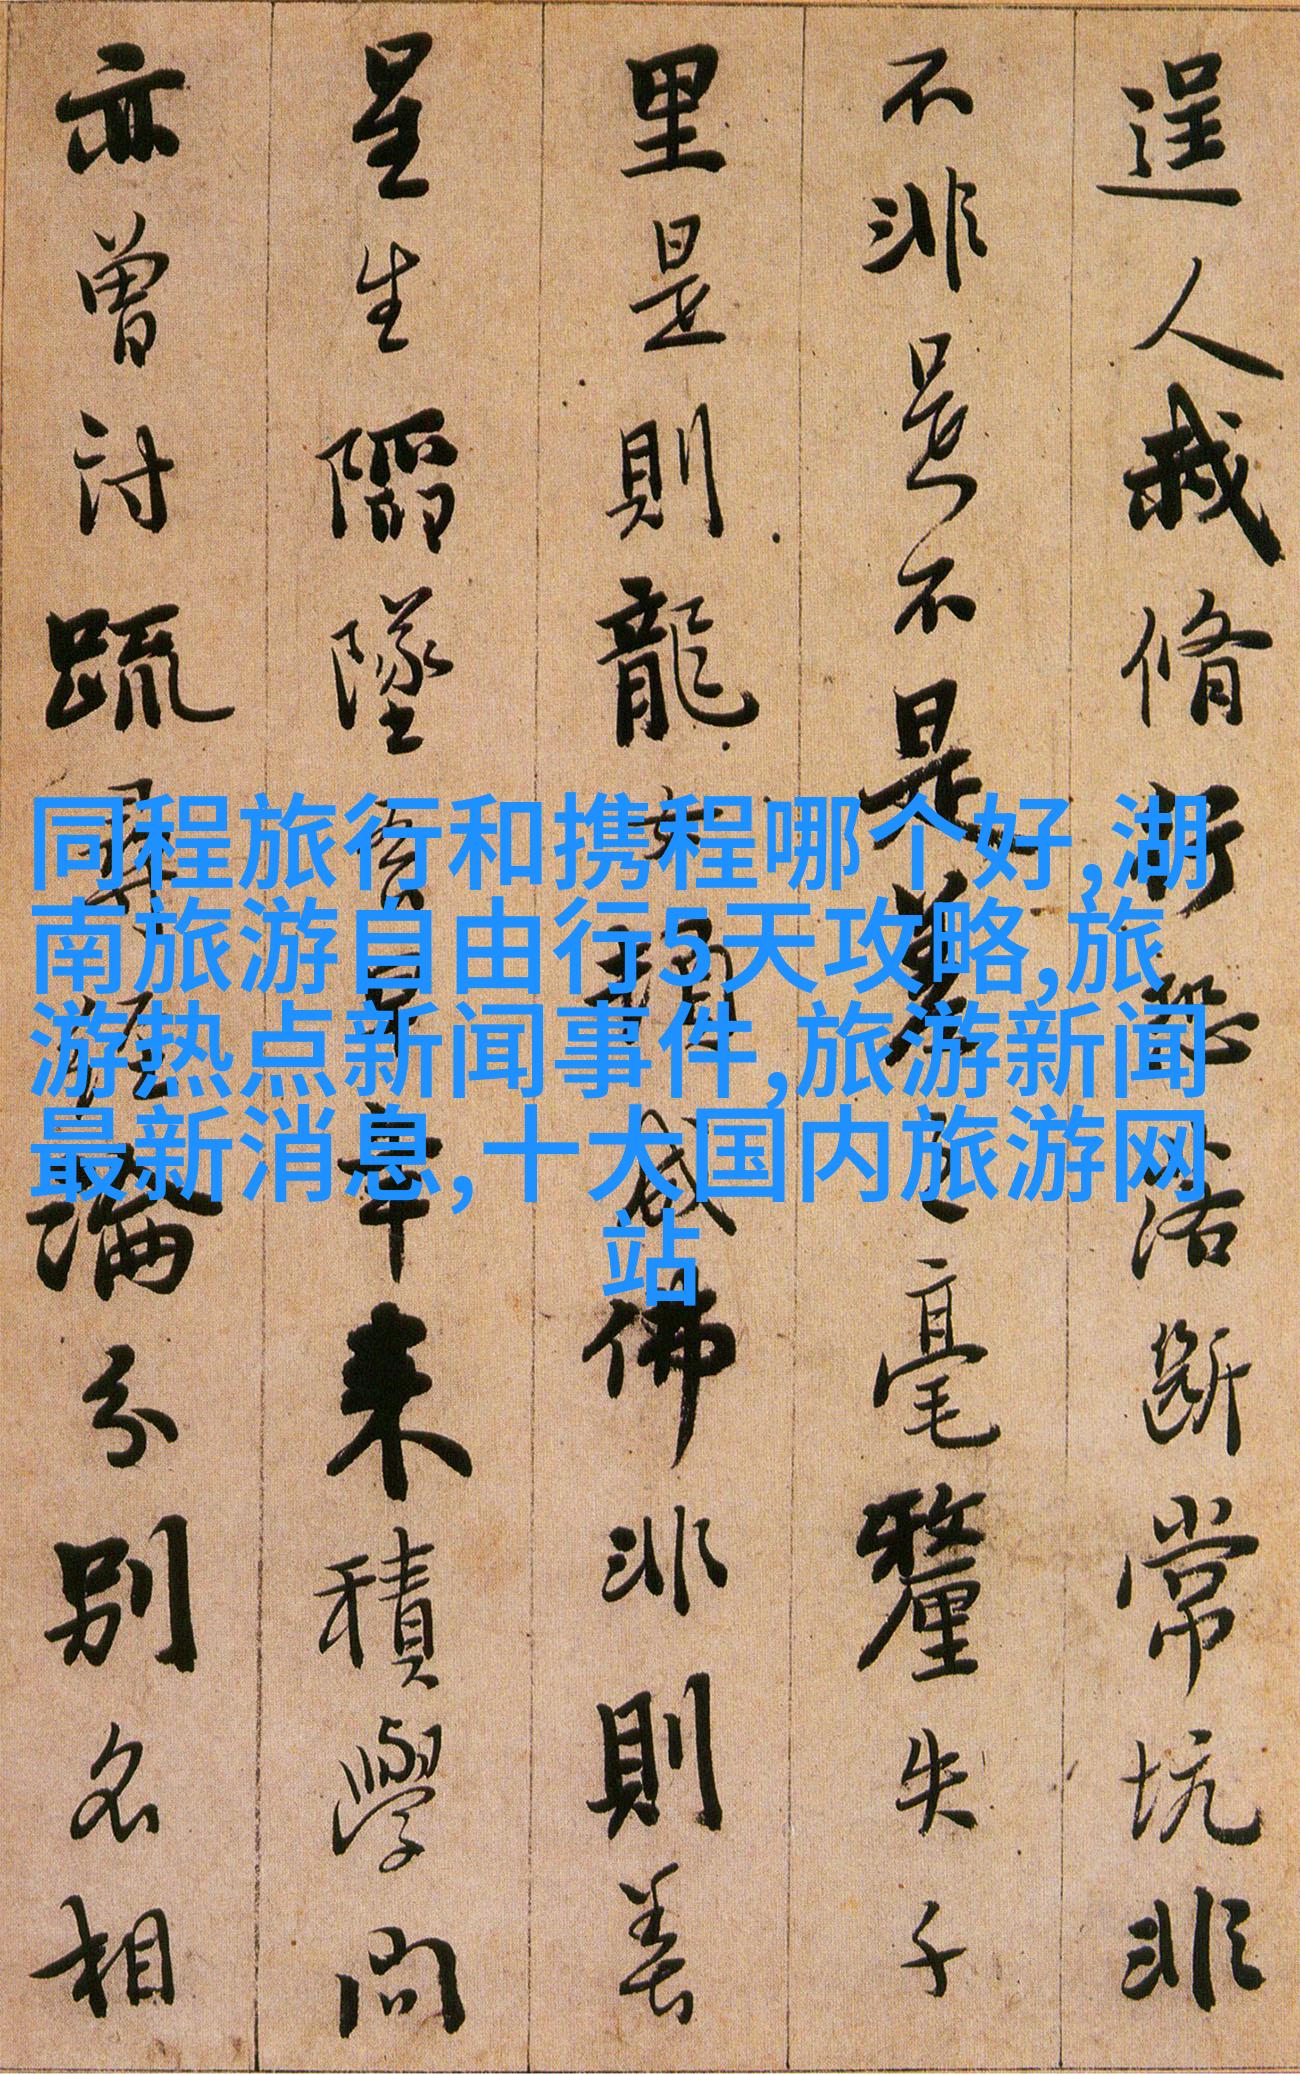 逞人我脩行恐落斷常坑非
不非是不是差之毫釐失千
里是則龍女頓成佛非則善
星生陷墜吾早年来積學問
亦曾討疏尋經論分別名相
同程旅行和携程哪个好,湖
南旅游自由行5天攻略,旅
游热点新闻事件,旅游新闻
最新消息,十大国内旅游网
站